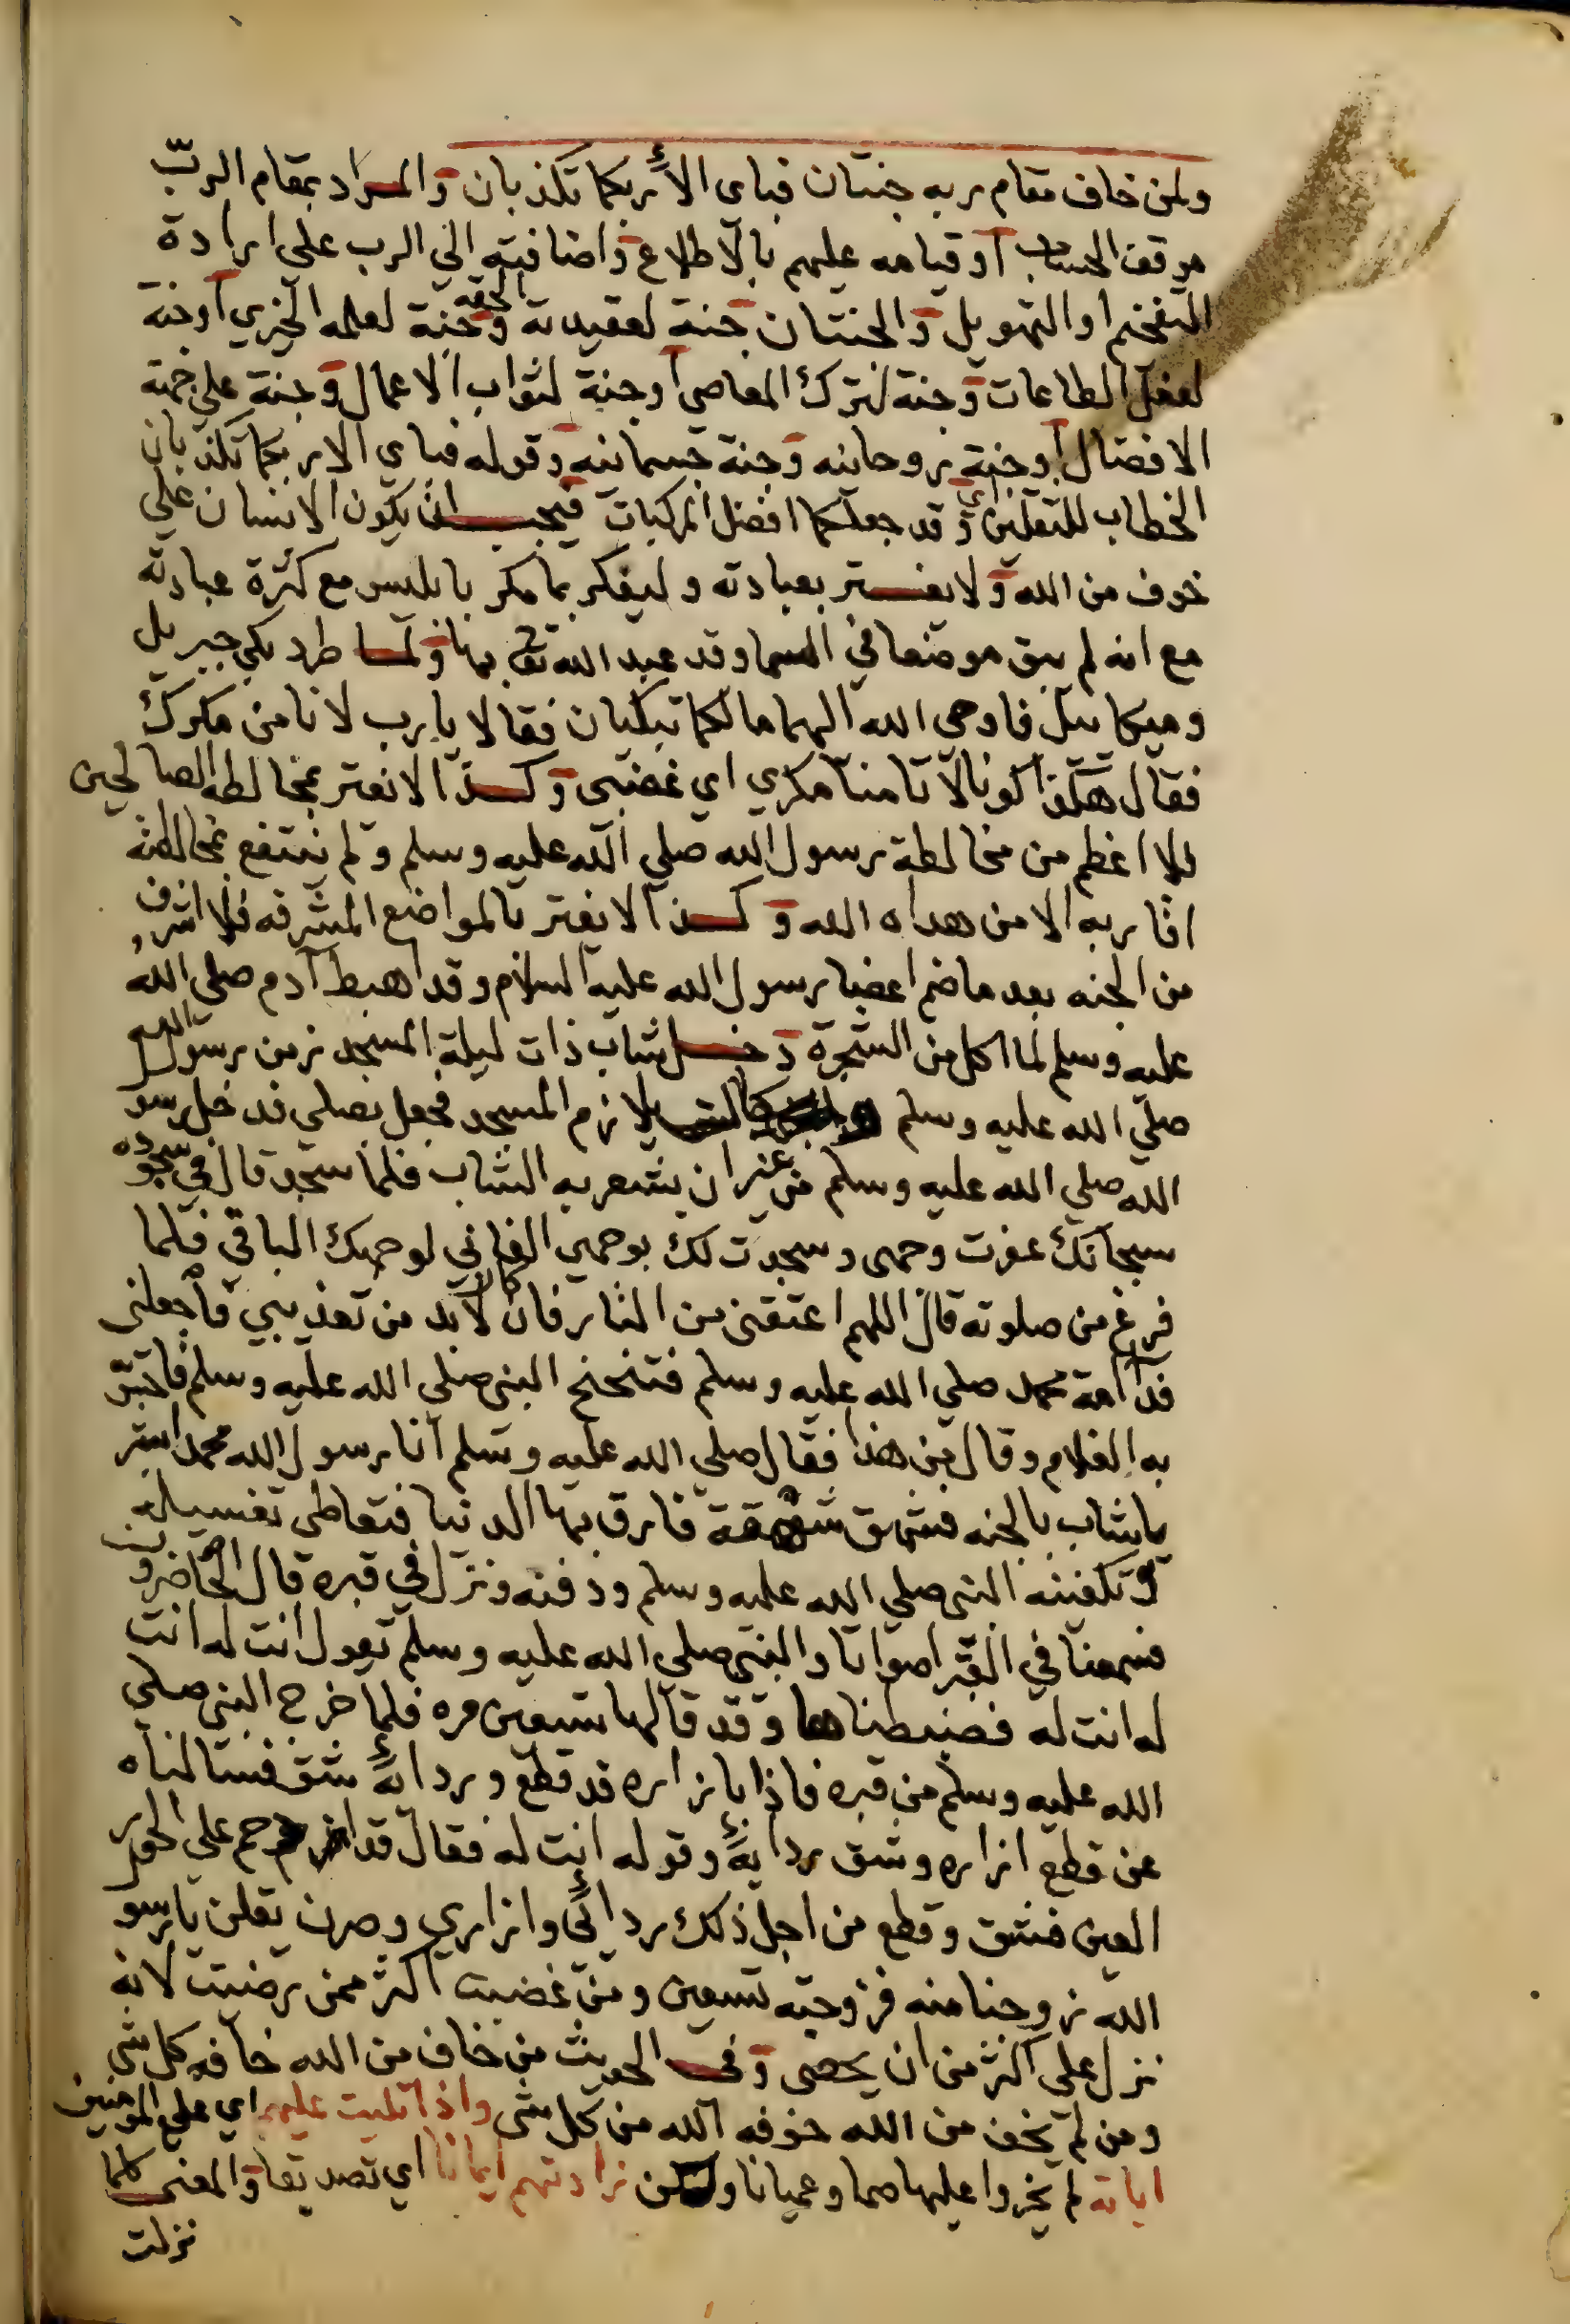 ولمن خاف مقام ربه جنتان فباى الآء ربكما تكذبان والمراد بمقام الربّ
موقف الحساب او قيامه عليهم بالاطلاع واضافته الي الرب على ارادة
التفخيم او التهويل والجنتان جنة لعقيدته الحقه وجنة لعمله الخيري او جنة
لفعل الطاعات وجنة لترك المعاصي او جنة لثواب الاعمال وجنة على جهة
الافضال او جنة روحانيه وجنة جسمانيه وقوله فباي الاء ربكما تكذبان
الخطاب للثقلين اي وقد جعلكما افضل المركبات فيجب ان يكون الانسان علي
خوف من الله ولا يغتر بعبادته وليفكر بما مكر بابليس مع كثرة عبادته
مع انه لم يبق موضعا في السما وقد عبد الله تعالى بها ولما طرد بكى جبريل
وميكائيل فاوحى الله اليهما ما لكما تبكيان فقالا يا رب لا نامن مكرك
فقال هكذا كونا لا تامنا مكري اي غضبى وكذا لا تغتر بمخالطه الصالحين
فلا اعظم من مخالطة رسول الله صلي الله عليه وسلم ولم ينتفع بمخالطته
اقاربه الا من هداه الله وكذا لا يغتر بالمواضع المشرفه فلا اشرف
من الجنه بعد ما ضم اعضا رسول الله عليه السلام وقد اهبط آدم صلي الله
عليه وسلم لما اكل من الشجرة دخل شاب ذات ليلة المسجد زمن رسول الله
صلي الله عليه وسلم يلازم المسجد فجعل يصلي فدخل رسو
الله صلي الله عليه وسلم من غير ان يشعر به الشاب فلما سجد قال في سجوده
سبحانك عفرت وجهى وسجدت لك بوجهي الفاني لوجهك الباقي فلما
فرغ من صلوته قال اللهم اعتقنى من النار فان كان لا بد من تعذيبي فاجعلنى
فدا امة محمد صلي الله عليه وسلم فتنحنح النبى صلي الله عليه وسلم
به الغلام وقال من هذا فقال صلي الله عليه وسلم انا رسول الله محمد ابشر
يا شاب بالجنه فشهق شهقة فارق بها الدنيا فتعاطى تغسيله
وتكفينه النبى صلي الله عليه وسلم ودفنه ونزل في قبره قال الحاضرون
فسمعنا في القبر اصواتا والنبى صلي الله عليه وسلم يقول انت له انت
له انت له فضبطناها وقد قالها سبعين مره فلما خرج النبى صلى
الله عليه وسلم من قبره فاذا بازاره قد قطع وردائه شق فسالناه
عن قطع ازاره وشق ردايه وقوله انت له فقال قد ازدحم على الحور
العين فشق وقطع من اجل ذلك ردائي وازاري وصرن يقلن يا رسو
الله زوجنا منه فزوجته تسعين ومن غضبت اكثر ممن رضيت لانه
نزل على اكثر من ان يحصى وفى الحديث من خاف من الله خافه كل شى
ومن لم يخف من الله خوفه الله من كل شى واذا تليت عليهم اي على المومنين
اياته لم يخروا عليها صما وعميانا ولكن زادتهم ايمانا اي تصديقا والمعنى كلما
نزلت